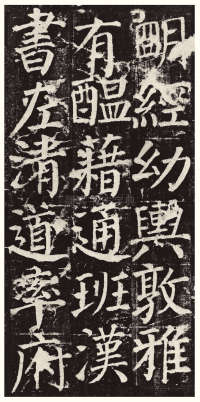 明經幼輿敦雅
有醞藉通班漢
書左清道率府